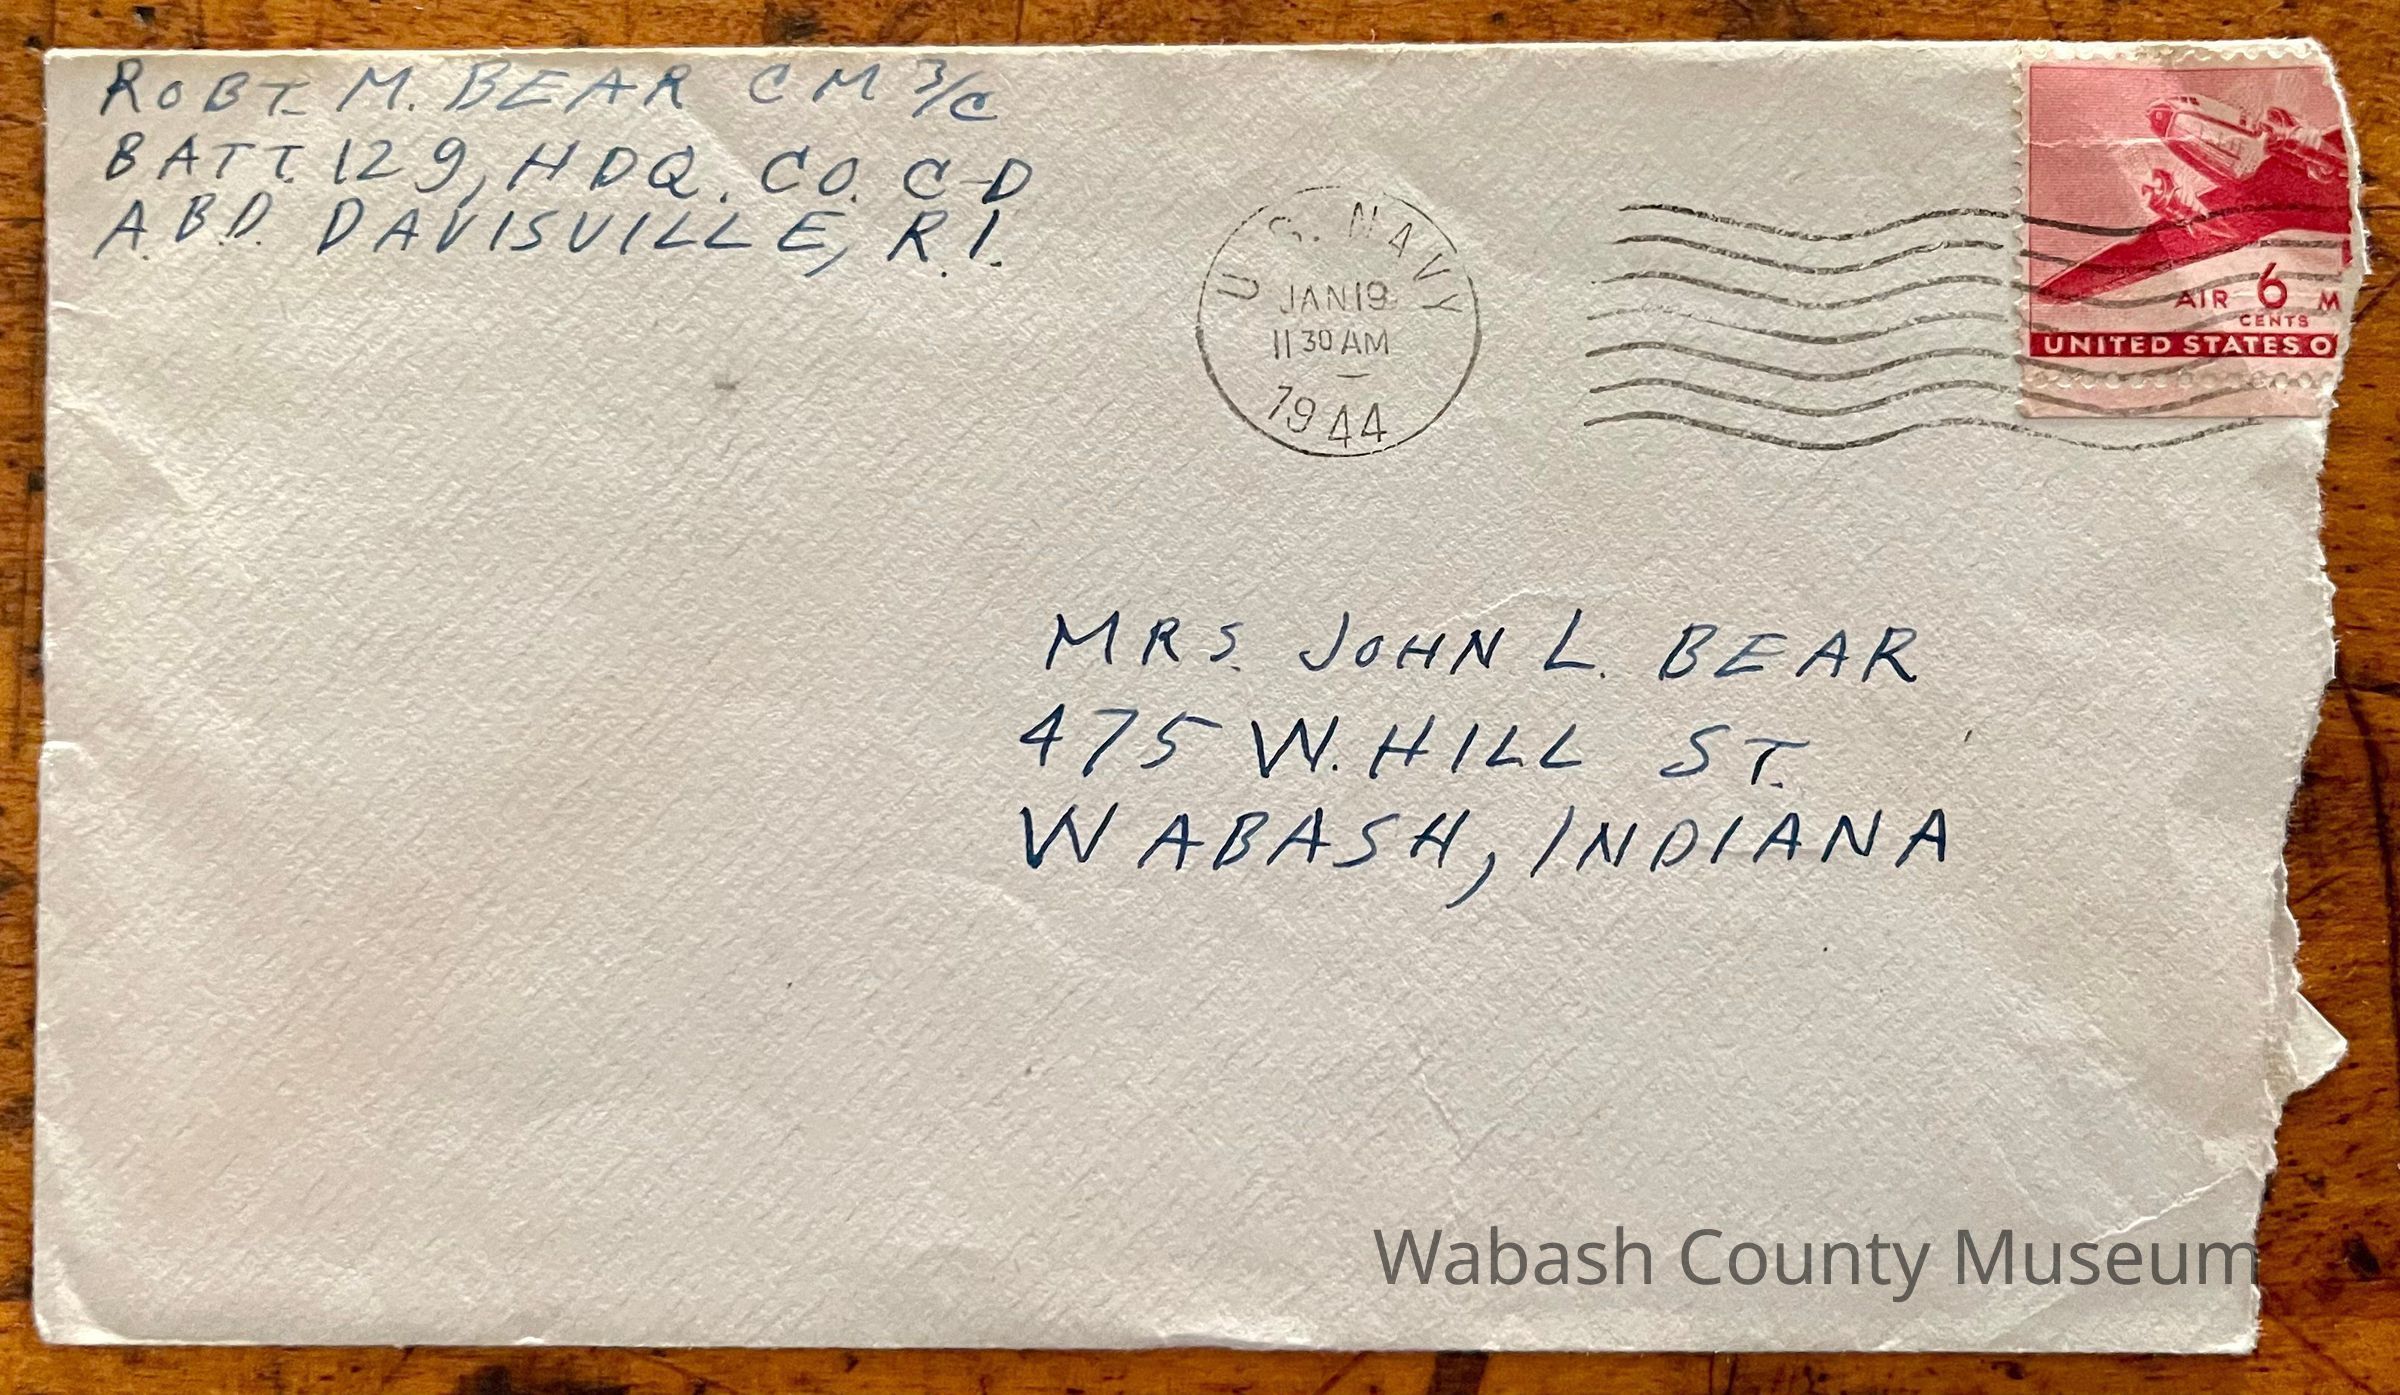 ROBT. M. BEAR CM 3/C
BATT. 129, HDQ. CO. C-D
A.B.D. DAVISVILLE, R.I.
U.S. NAVY
JAN 19
11 30 AM
1944
AIR 6 M
CENTS
UNITED STATES O
MRS. JOHN L. BEAR
475 W. HILL ST.
WABASH, INDIANA
Wabash County Museum